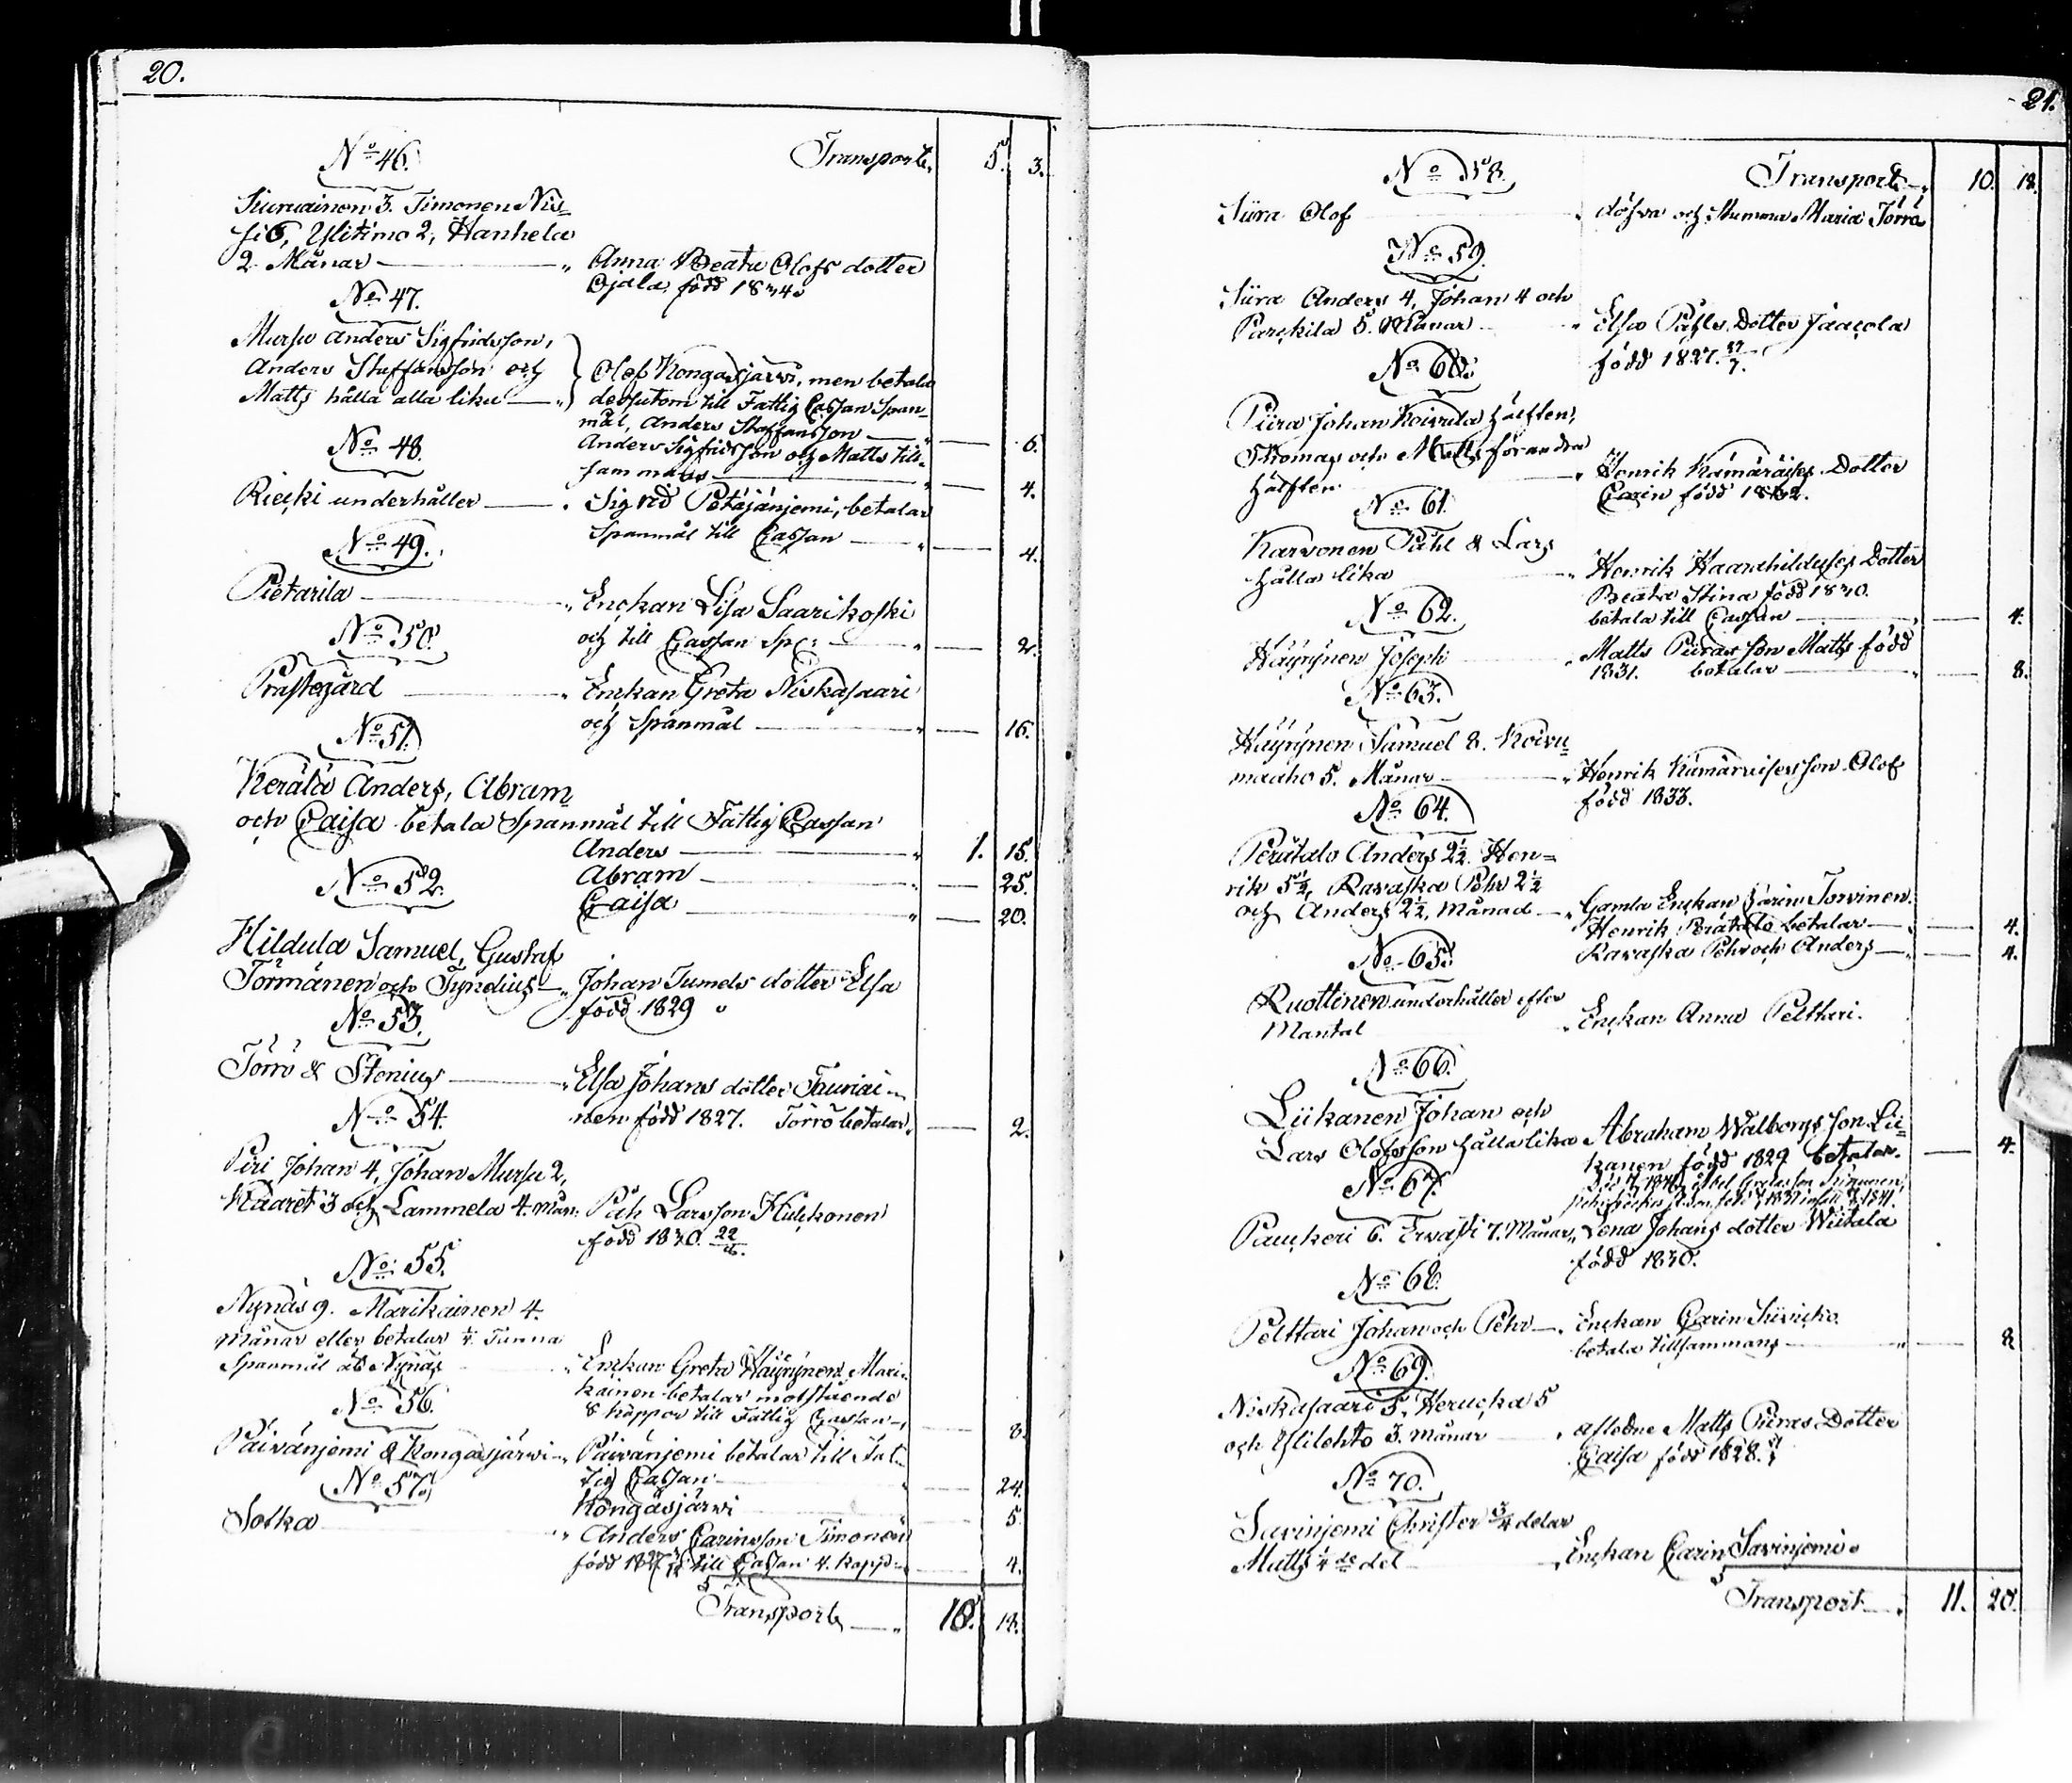 20.
No 46. Transport. 5. 3.
Siuruainen 3. Timonen Nis=
si 6, Ylitimo 2, Hanhela
2 Månar — " Anna Beata Olofs dotter
Ojala född 1834.
No 47.
Mursu Anders Sigfridsson,
Anders Staffansson och
Matts hålla alla lika — "
Olof Kongasjärvi, men betala
dessutom till Fattig Cassan Span=
mål, Anders Staffansson — " — 6.
Anders Sigfridsson och Matts till=
sammans — " — 4.
No 48.
Riecki underhåller — " Sigrid Petäjänjemi, betalar
Spanmål till Cassan — " — 4.
No 49.
Pietarila — " Enckan Lisa Saarikoski
och till Cassan Sp: — " — 2.
No 50.
Prästegård — " Enckan Greta Niskasaari
och Spanmål — " — 16.
No 51.
Kerälä Anders, Abram
och Caisa betala Spanmål till Fattig Cassan
Anders — " 1. 15.
Abram — " — 25.
Caisa — " — 20.
No 52.
Hildula Samuel, Gustaf
Törmänen och Tynelius — " Johan Tumels dotter Elsa
född 1829
No 53.
Törrö & Stenius — " Elsa Johans dotter Tauriai=
nen född 1827. Törrö betalar " — 2.
No 54.
Piri Johan 4, Johan Mursu 2,
Waaret 3 och Lammela 4. Mån: Påhl Larsson Hulckonen
född 1830. 22/
No 55.
Nynäs 9. Marikainen 4.
Månar eller betalar 1/4 Tunna
Spanmål åt Nynäs " Enckan Greta Häyrynen, Mari=
kainen betalar motstående
8 kappor till Fattig Cassan — " — 8.
No 56.
Päivänjemi & Kongasjärwi — " Päivänjemi betalar till Fat=
tig Cassan — " — 24.
Kongasjärwi — 5
No 57.
Sotka " Anders Carinsson Timonen
född 1827 till Cassan 4. kapp: " — 4.
Transport — " 10. 18.
21.
No 58. Transport — " 10. 18.
Siira Olof " döfva och stumma Maria Törrö
No 59.
Siira Anders 4, Johan 4 och
Parckila 5. Månar — " Elsa Påhls Dotter Jaacola
född 1827. 27/7.
No 60.
Piira Johan Koivula hälften,
Thomas och Matts för andra
hälften " Henrik Kämäräises Dotter
Carin född 1832.
No 61.
Karvonen Påhl & Lars
hålla lika " Henrik Haarahilduses Dotter
Beata Stina född 1830.
betala till Cassan — " — 4.
No 62.
Häyrynen Joseph " Matts Piiras son Matts född
1831. betalar — " — 8.
No 63.
Häyrynen Samuel 8. Koivu=
maaho 5. Månar — " Henrik Kämäräises son Olof
född 1833.
No 64.
Perätalo Anders 2½. Hen=
rik 5½, Ravaska Pehr 2½
och Anders 2½, Månad — " Gamla Enckan Carin Torvinen.
Henrik Perätalo betalar — " — 4.
Ravaska Pehr och Anders — " — 4.
No 65.
Ruottinen underhåller efter
Mantal " Enckan Anna Pelttari.
No 66.
Liikanen Johan och
Lars Olofsson hålla lika Abraham Walborgs son Lii=
kanen född 1829 betalar. — 4.
No 67.
Pauckeri 6. Ervasti 7. Månar " Lena Johans dotter Wiitala
född 1830.
No 68.
Pelttari Johan och Pehr — " Enckan Carin Siivicko
betala tillsammans — " 8
No 69.
Niskasaari 5. Herucka 5
och Ylilehto 3. Månar — " afledne Matts Piiras Dotter
Caisa född 1828.
No 70.
Savinjemi Christer 3/4 delar
Matts 1/4 de del — " Enckan Carin Savinjemi.
Transport — " 11. 20.